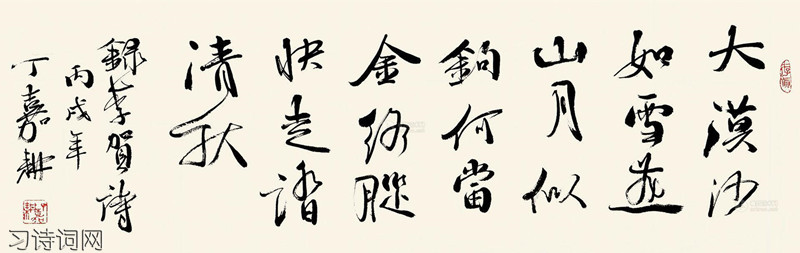 大漠沙
如雪燕
山月似
鉤何當
金絡腦
快走踏
清秋
録李賀詩
丙戌年
丁嘉耕
习诗词网